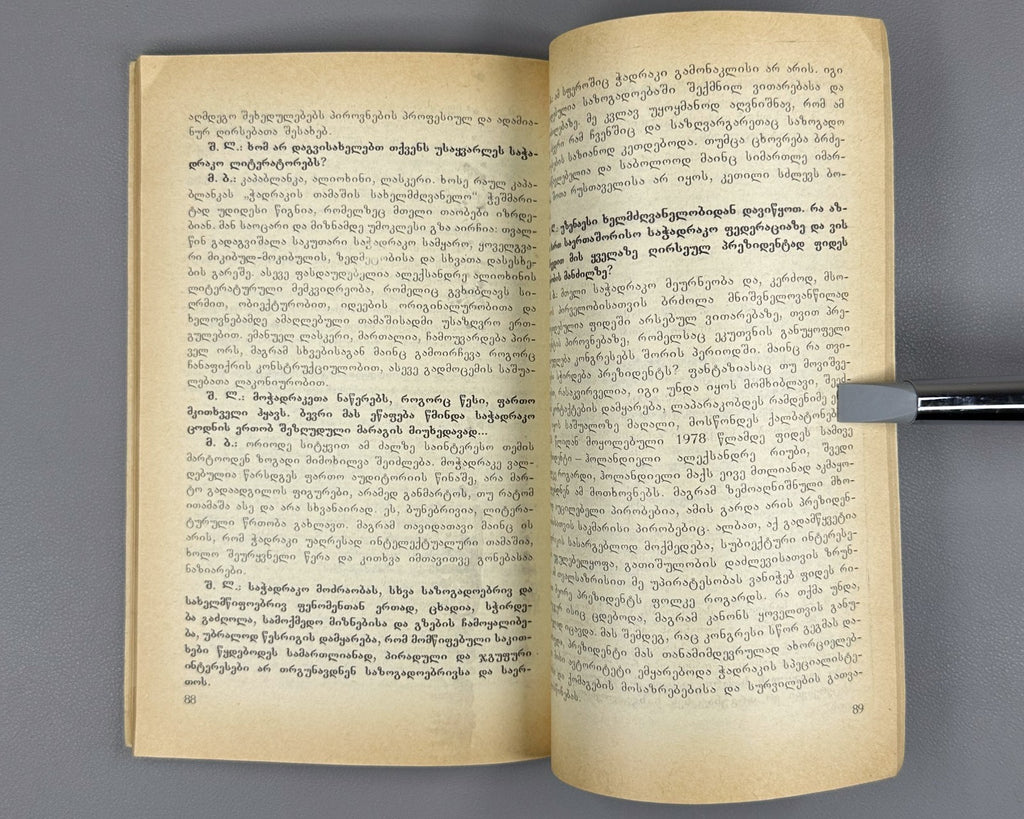 აღმდეგო შეხედულებებს პიროვნების პროფესიულ და ადამია-
ნურ ღირსებათა შესახებ.
შ. ლ.: ხომ არ დაგვისახელებთ თქვენს უსაყვარლეს საჭა-
დრაკო ლიტერატორებს?
მ. ბ.: კაპაბლანკა, ალიოხინი, ლასკერი. ხოსე რაულ კაპა-
ბლანკას „ჭადრაკის თამაშის სახელმძღვანელო“ ჭეშმარი-
ტად უდიდესი წიგნია, რომელზეც მთელი თაობები იზრდე-
ბიან. მან საოცარი და მიზნამდე უმოკლესი გზა აირჩია: თვალ-
წინ გადაგვიშალა საკუთარი საჭადრაკო სამყარო, ყოველგვა-
რი მიკიბულ-მოკიბულის, ზედმეტობისა და სხვათა დასესხე-
ბის გარეშე. ასევე ფასდაუდებელია ალექსანდრე ალიოხინის
ლიტერატურული მემკვიდრეობა, რომელიც გვხიბლავს სი-
ღრმით, ობიექტურობით, იდეების ორიგინალურობითა და
ხელოვნებამდე ამაღლებული თამაშისადმი უსაზღვრო ერთ-
გულებით. ემანუელ ლასკერი, მართალია, ჩამოუვარდება პირ-
ველ ორს, მაგრამ სხვებისაგან მაინც გამოირჩევა როგორც
ჩანაფიქრის კონსტრუქციულობით, ასევე გადმოცემის საშუა-
ლებათა ლაკონიურობით.
შ. ლ.: მოჭადრაკეთა ნაწერებს, როგორც წესი, ფართო
მკითხველი ჰყავს. ბევრი მას ეწაფება წმინდა საჭადრაკო
ცოდნის ერთობ შეზღუდული მარაგის მიუხედავად...
მ. ბ.: ორიოდე სიტყვით ამ ძალზე საინტერესო თემის
მარტოოდენ ზოგადი მიმოხილვა შეიძლება. მოჭადრაკე ვალ-
დებულია წარსდგეს ფართო აუდიტორიის წინაშე, არა მარ-
ტო გადაადგილოს ფიგურები, არამედ განმარტოს, თუ რატომ
ითამაშა ასე და არა სხვანაირად. ეს, ბუნებრივია, ლიტერა-
ტურული წრთობა გახლავთ. მაგრამ თავიდათავი მაინც ის
არის, რომ ჭადრაკი უაღრესად ინტელექტუალური თამაშია,
ხოლო შეურყვნელი წერა და კითხვა იმთავითვე გონებასაა
ნაზიარები.
შ. ლ.: საჭადრაკო მოძრაობას, სხვა საზოგადოებრივ და
სახელმწიფოებრივ ფენომენთან ერთად, ცხადია, სჭირდე-
ბა გაძღოლა, სამოქმედო მიზნებისა და გზების ჩამოყალიბე-
ბა, უბრალოდ წესრიგის დამყარება, რომ მომწიფებული საკით-
ხები წყდებოდეს სამართლიანად, პირადული და ჯგუფური
ინტერესები არ თრგუნავდნენ საზოგადოებრივსა და საერ-
თოს.
88
ამ სფეროშიც ჭადრაკი გამონაკლისი არ არის. იგი
საზოგადოებაში შექმნილ ვითარებასა და
მე კვლავ უყოყმანოდ აღვნიშნავ, რომ ამ
რამ ჩვენშიც და საზღვარგარეთაც საზოგადო
საზიანოდ კეთდებოდა. თუმცა ცხოვრება ბრძო-
და საბოლოოდ მაინც სიმართლე იმარ-
შოთა რუსთაველისა არ იყოს, კეთილი სძლევს ბო-
ლ.: უზენაესი ხელმძღვანელობიდან დავიწყოთ. რა აზ-
საერთაშორისო საჭადრაკო ფედერაციაზე და ვის
მის ყველაზე ღირსეულ პრეზიდენტად ფიდეს
მანძილზე?
ბ.: მთელი საჭადრაკო მეურნეობა და, კერძოდ, მსო-
პირველობისათვის ბრძოლა მნიშვნელოვანწილად
ფიდეში არსებულ ვითარებაზე, თვით პრე-
პიროვნებაზე, რომელსაც ეკუთვნის განუყოფელი
კონგრესებს შორის პერიოდში. მაინც რა თვი-
სჭირდება პრეზიდენტს? ფანტაზიასაც თუ მოვიშვე-
რასაკვირველია, იგი უნდა იყოს მომხიბლავი,
დამყარება, ლაპარაკობდეს რამდენიმე
საშუალოზე მაღალი, მოსწონდეს
წლიდან მოყოლებული 1978 წლამდე ფიდეს სამივე
— ჰოლანდიელი ალექსანდრე რიუბი, შვედი
როგარდი, ჰოლანდიელი მაქს ეივე მთლიანად აკმაყო-
ამ მოთხოვნებს. მაგრამ ზემოაღნიშნული მხო-
აუცილებელი პირობებია, ამის გარდა არის პრეზიდენ-
საკმარისი პირობებიც. ალბათ, აქ გადამწყვეტია
სასარგებლოდ მოქმედება, სუბიექტური ინტერესე-
გათიშულობის დაძლევისათვის ზრუნ-
თვალსაზრისით მე უპირატესობას ვანიჭებ ფიდეს რი-
მეორე პრეზიდენტს ფოლკე როგარდს. რა თქმა უნდა,
ისიც ცდებოდა, მაგრამ კანონს ყოველთვის განუ-
იცავდა. მას შემდეგ, რაც კონგრესი სწორ გეგმას და-
პრეზიდენტი მას თანამიმდევრულად ახორციელებ-
ავტორიტეტი ემყარებოდა ჭადრაკის სპეციალისტე-
და ქომაგების მოსაზრებებისა და სურვილების გათვა-
89